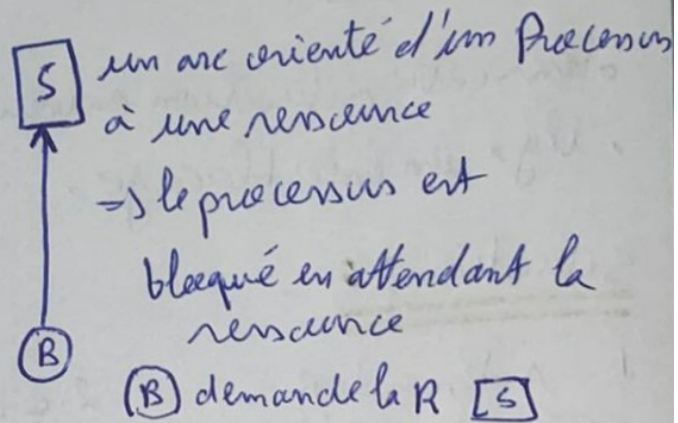 S
un arc orienté d'un Processus
à une ressource
=> le processus est
bloqué en attendant la
ressource
B
B demande la R S